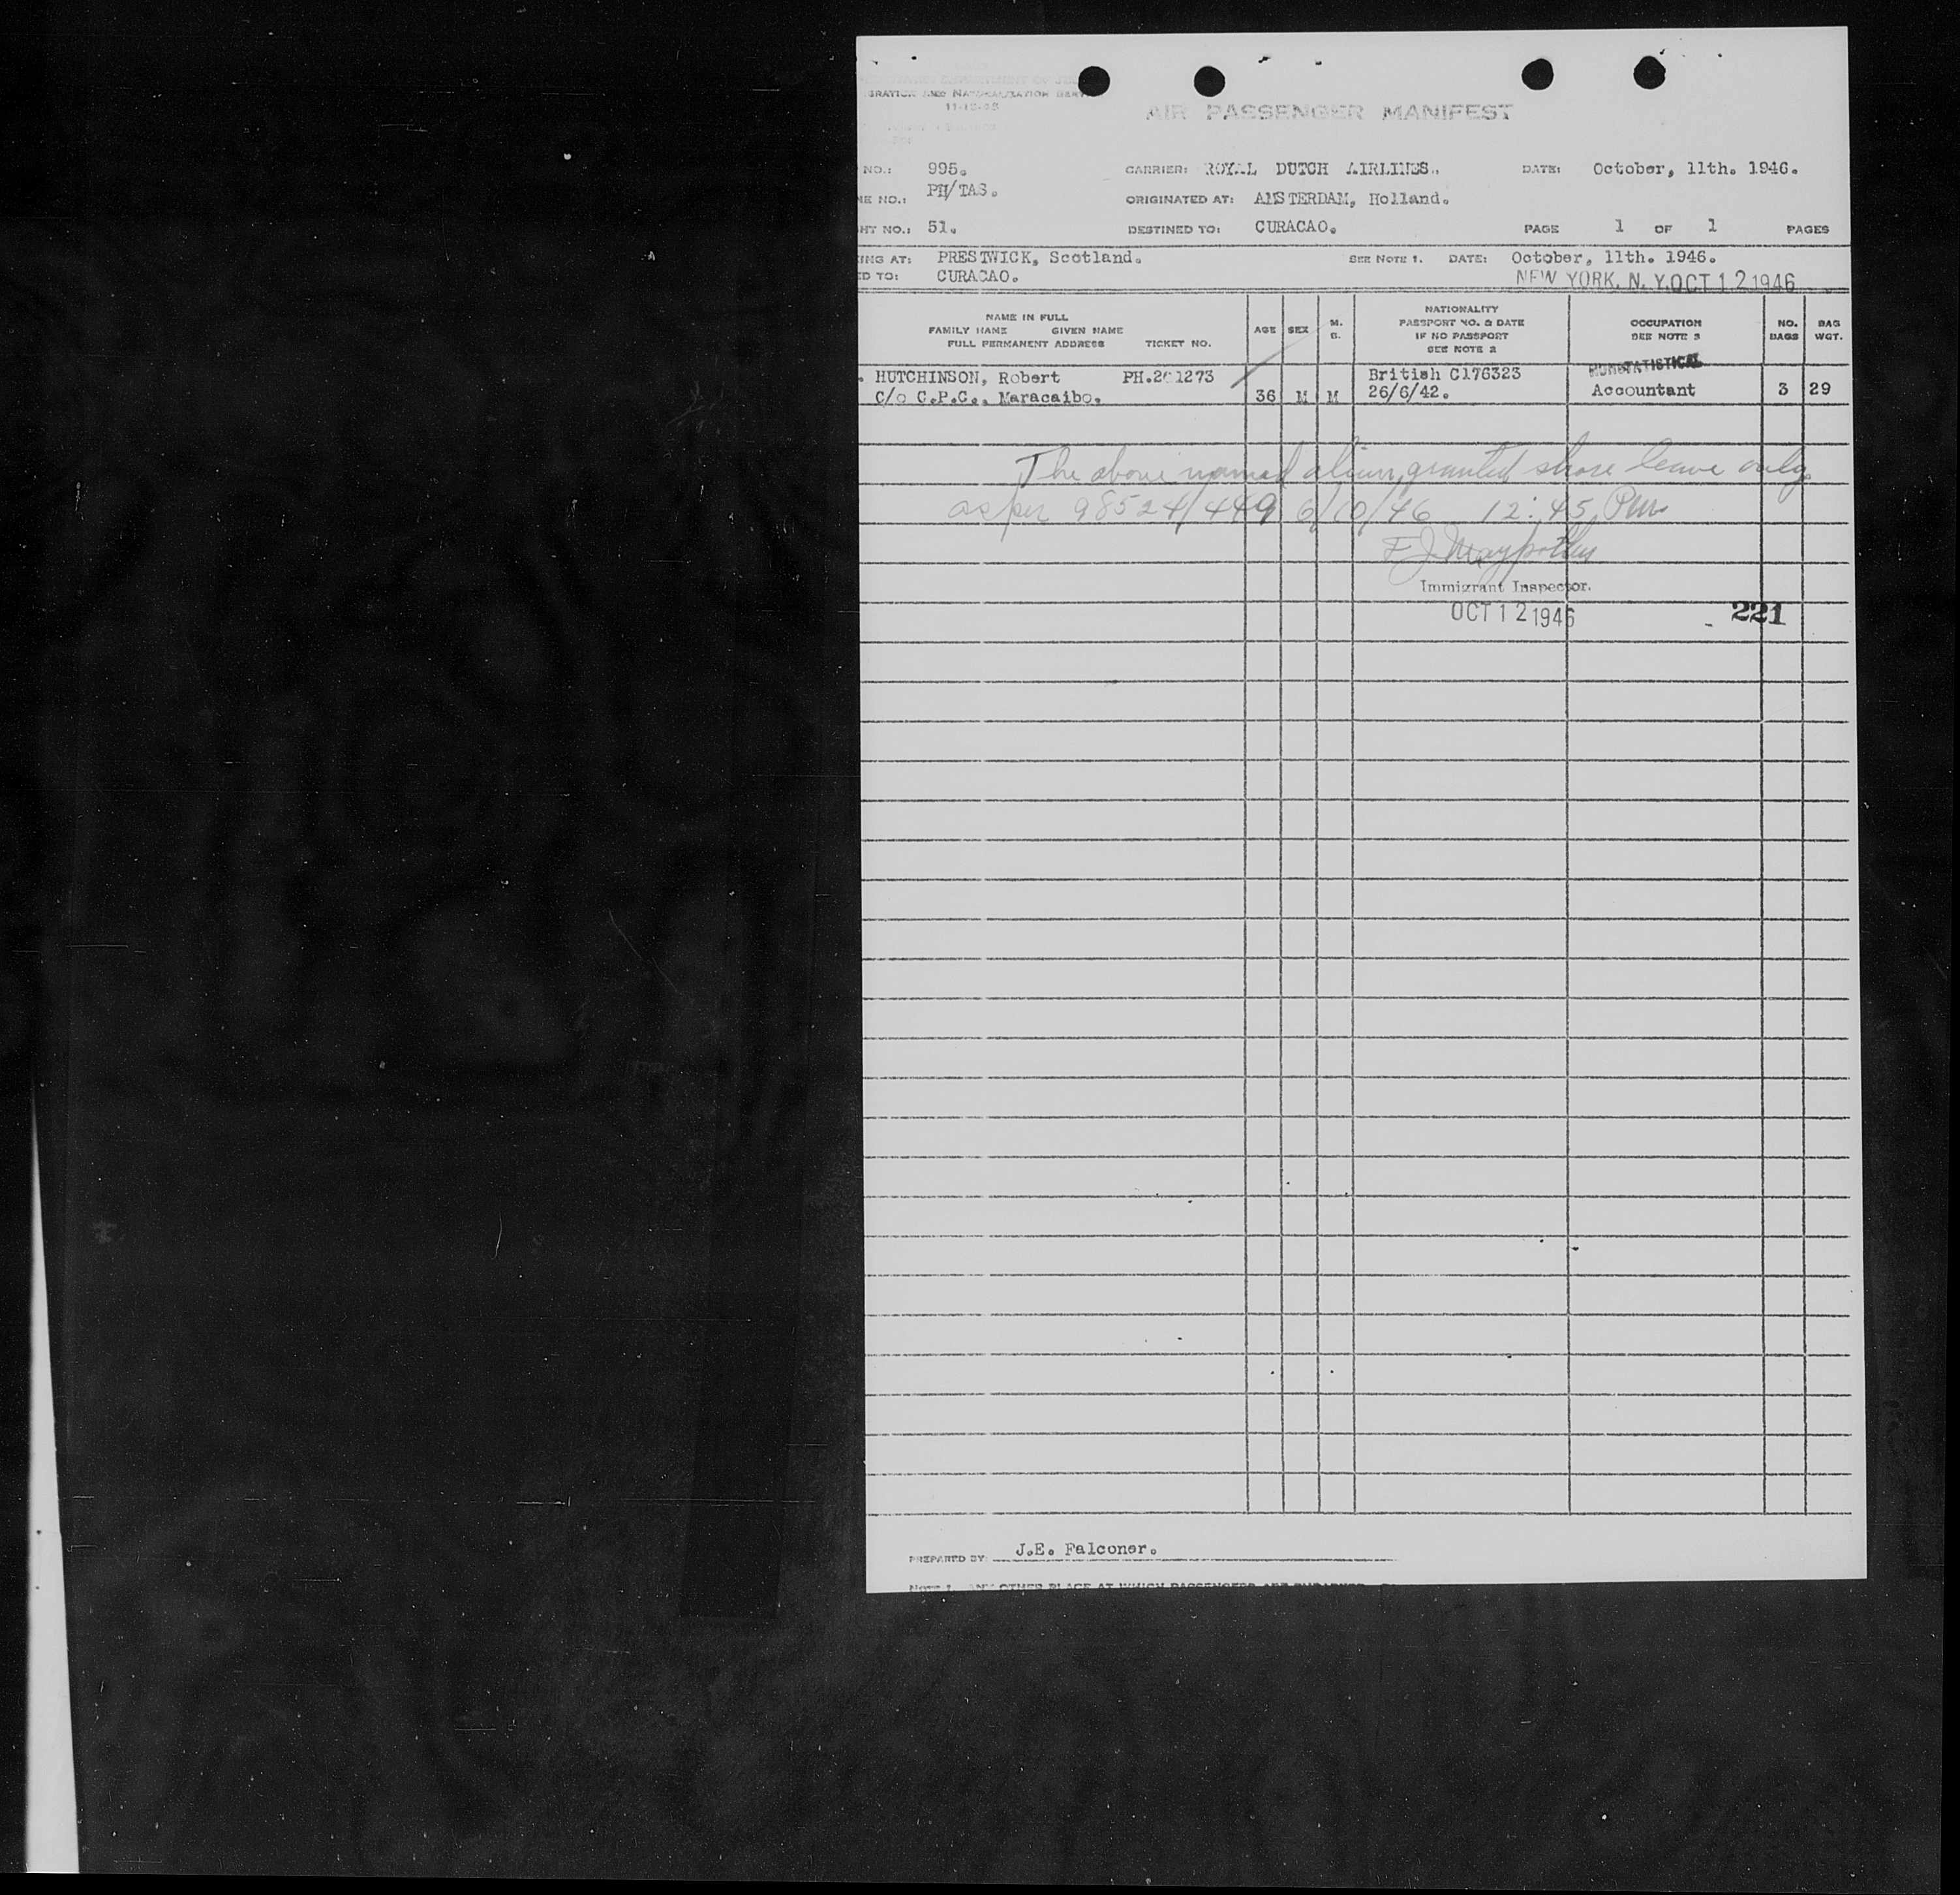 GRATION AND NATURALIZATION SERV
11-15-45
AIR PASSENGER MANIFEST
NO.: 995. CARRIER: ROYAL DUTCH AIRLINES. DATE: October, 11th. 1946.
NE NO.: PH/TAS. ORIGINATED AT: AMSTERDAM, Holland.
HT NO.: 51. DESTINED TO: CURACAO. PAGE 1 OF 1 PAGES
ING AT: PRESTWICK, Scotland. SEE NOTE 1. DATE: October, 11th. 1946.
ED TO: CURACAO. NEW YORK, N. Y. OCT 12 1946
NAME IN FULL
FAMILY NAME GIVEN NAME
FULL PERMANENT ADDRESS TICKET NO.
AGE SEX M. S.
NATIONALITY
PASSPORT NO. & DATE
IF NO PASSPORT
SEE NOTE 2
OCCUPATION
SEE NOTE 3
NO. BAGS
BAG WGT.
NONSTATISTICAL
. HUTCHINSON, Robert PH.261273 British C176323
C/o C.P.C., Maracaibo. 36 M M 26/6/42. Accountant 3 29
The above named alien granted shore leave only
as per 98524/449 6/10/46 12:45 Pm
Immigrant Inspector.
OCT 12 1946 221
PREPARED BY: J.E. Falconer.
NOTE 1. ANY OTHER PLACE AT WHICH PASSENGERS ARE